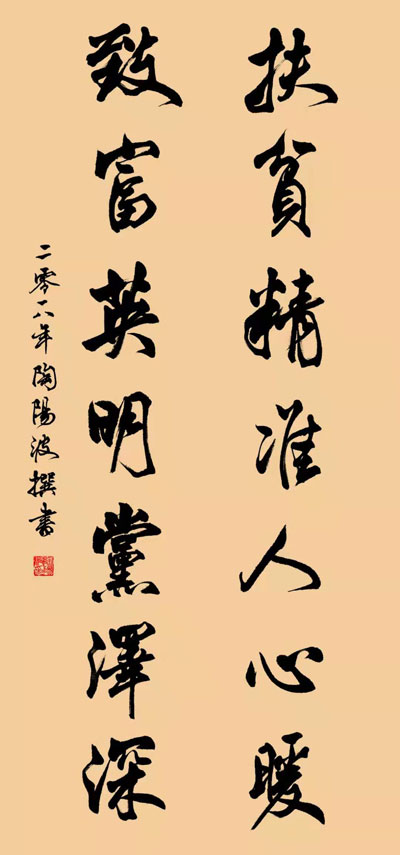 扶貧精准人心暖
致富英明黨澤深
二零一八年陶陽波撰書